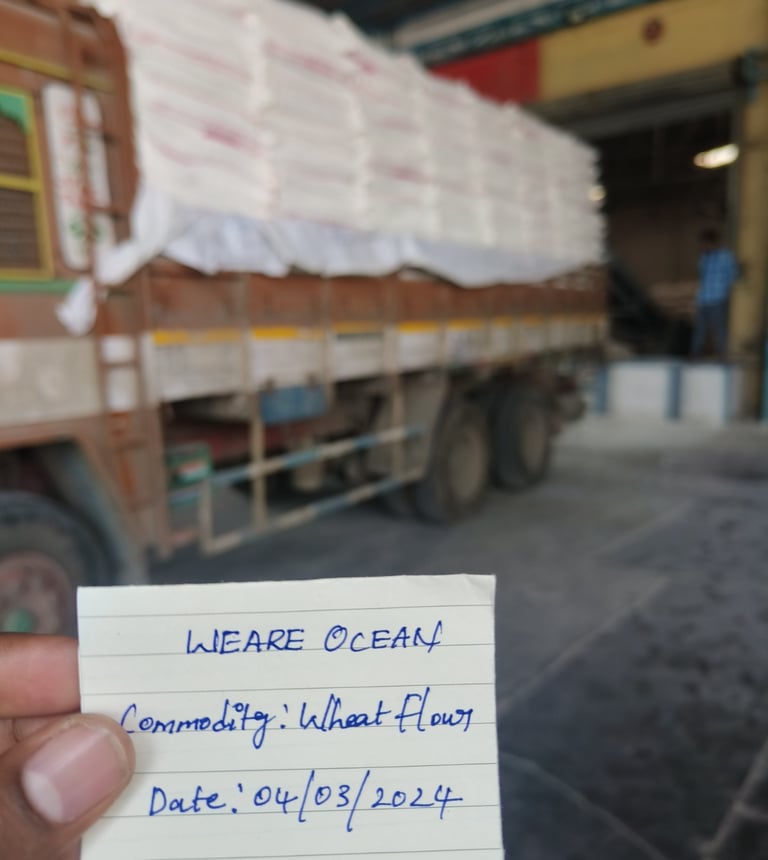 WEARE OCEAN
Commodity: Wheat flour
Date: 04/03/2024